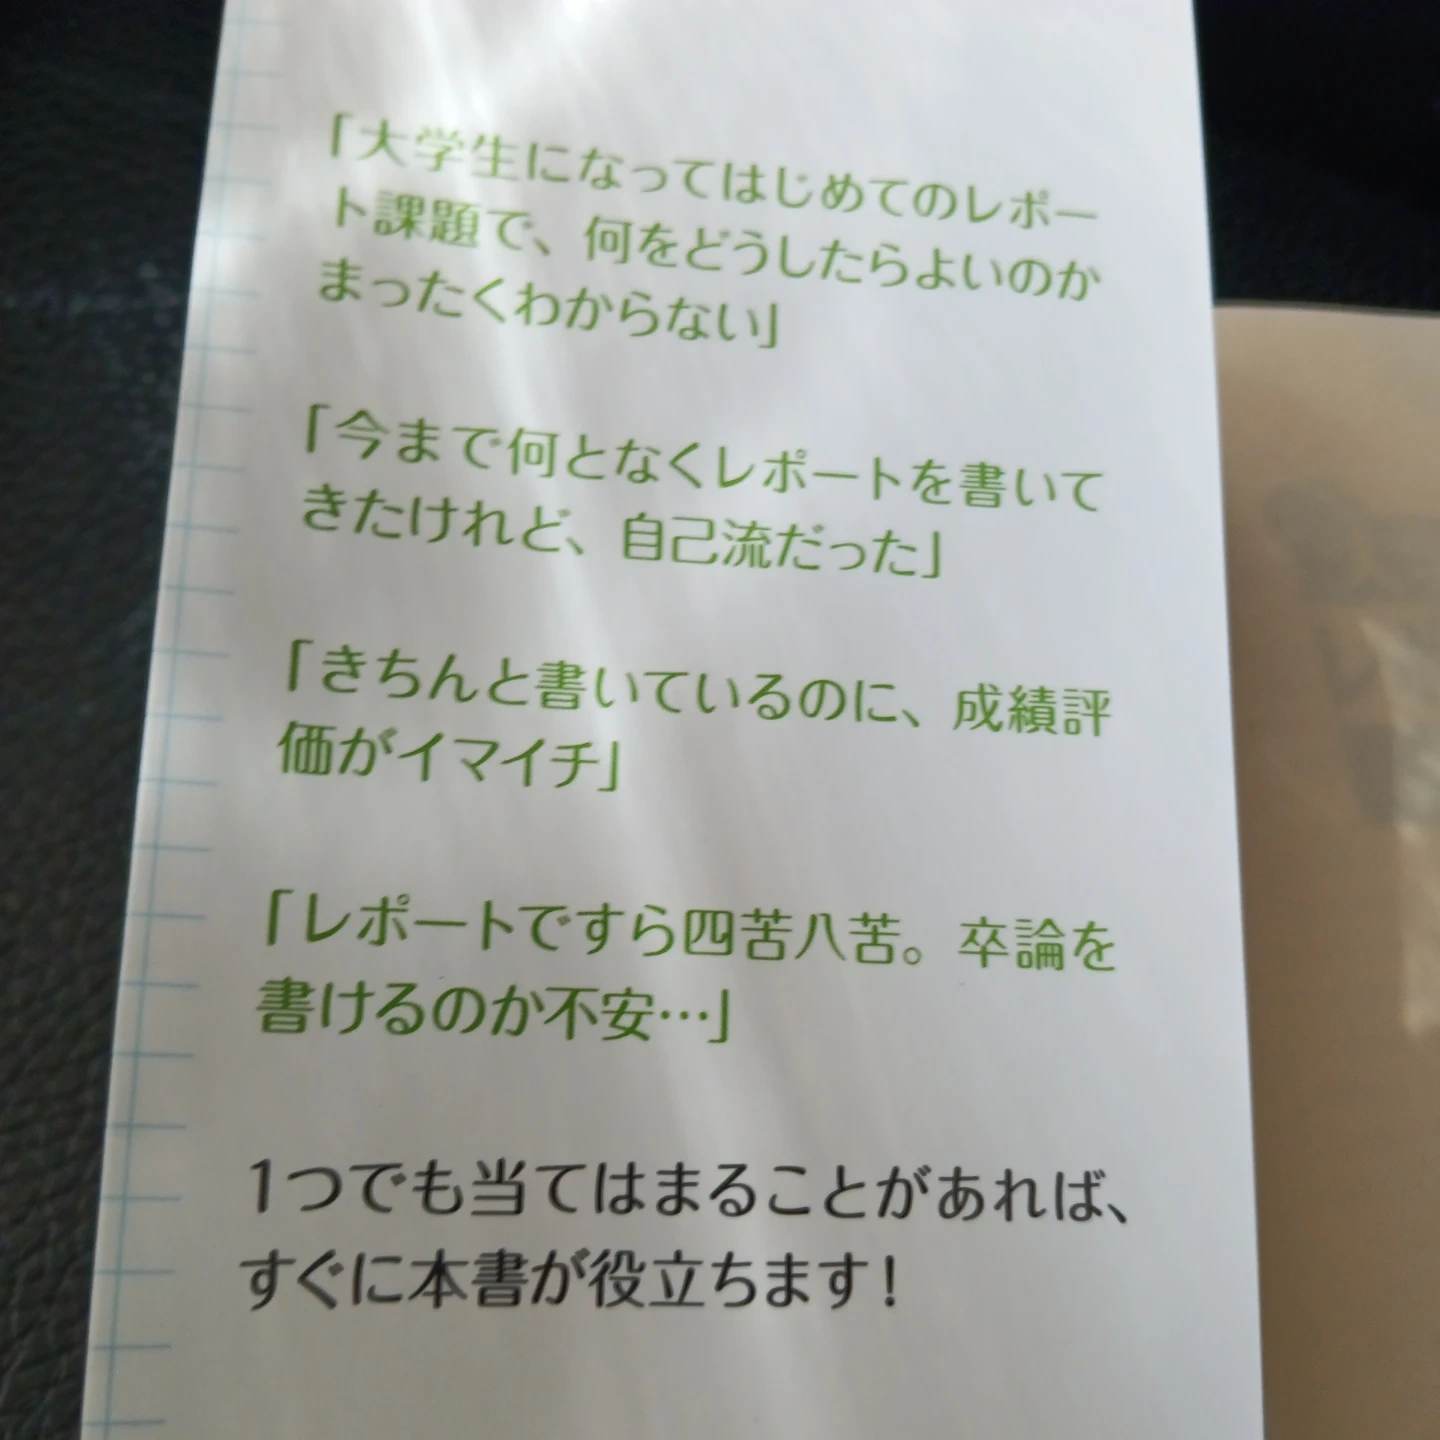 「大学生になってはじめてのレポー
ト課題で、何をどうしたらよいのか
まったくわからない」
「今まで何となくレポートを書いて
きたけれど、自己流だった」
「きちんと書いているのに、成績評
価がイマイチ」
「レポートですら四苦八苦。卒論を
書けるのか不安…」
1つでも当てはまることがあれば、
すぐに本書が役立ちます!